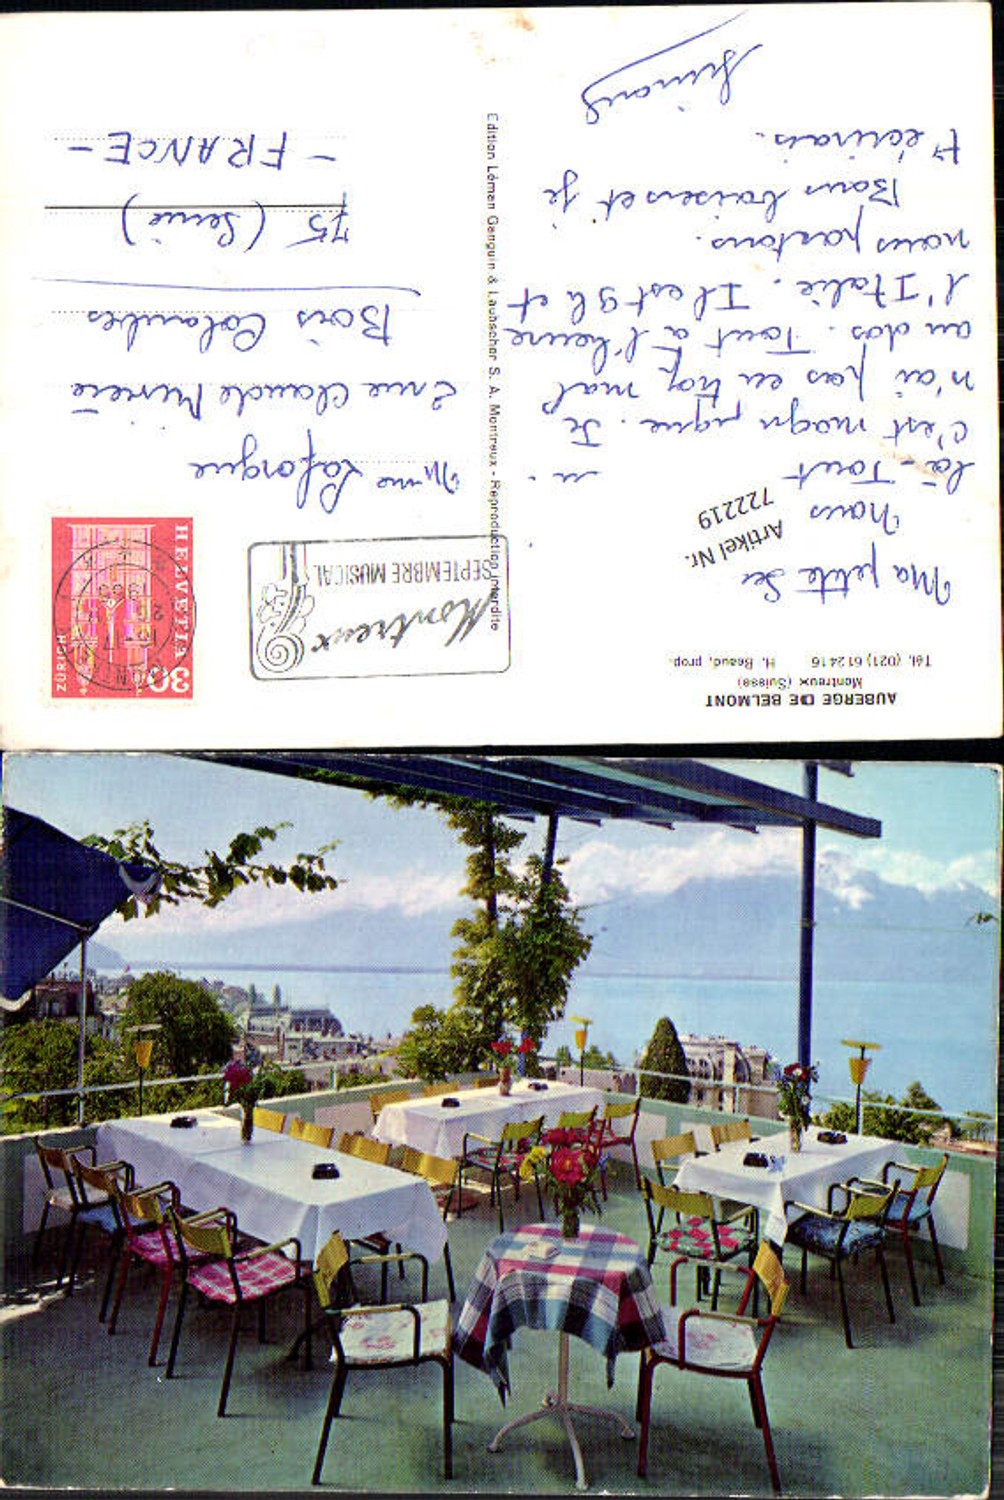 AUBERGE DE BELMONT
Montreux (Suisse)
Tél. (021) 61 24 16 H. Beaud, prop.
Ma petite
Nous
là - Tout
C'est magnifique. Je
n'ai pas eu trop mal
au dos. Tout à l'heure
l'Italie. Il est 9h et
nous partons.
Bons baisers et je
t'écrirais.
Artikel Nr.
722219
Edition Léman Genguin & Laubscher S. A. Montreux - Reproduction interdite
Montreux
SEPTEMBRE MUSICAL
HELVETIA
30
ZÜRICH
Mme Laforgue
2 rue Claude
Bois Colombes
75 (Seine)
- FRANCE -